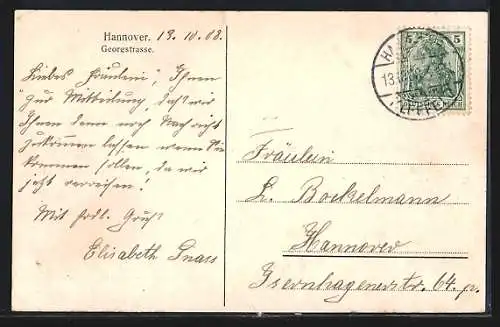 Hannover. 13.10.08.
Georestrasse.
Liebes Fräulein, Ihnen
zur Mitteilung, daß wir
Ihnen dann noch Nachricht
zukommen lassen wenn Sie
kommen sollen, da wir
jetzt verreisen!
Mit frdl. Gruß
Elisabeth
5 5
13
Fräulein
L. Bockelmann
Hannover
Isernhagenerstr. 64. p.